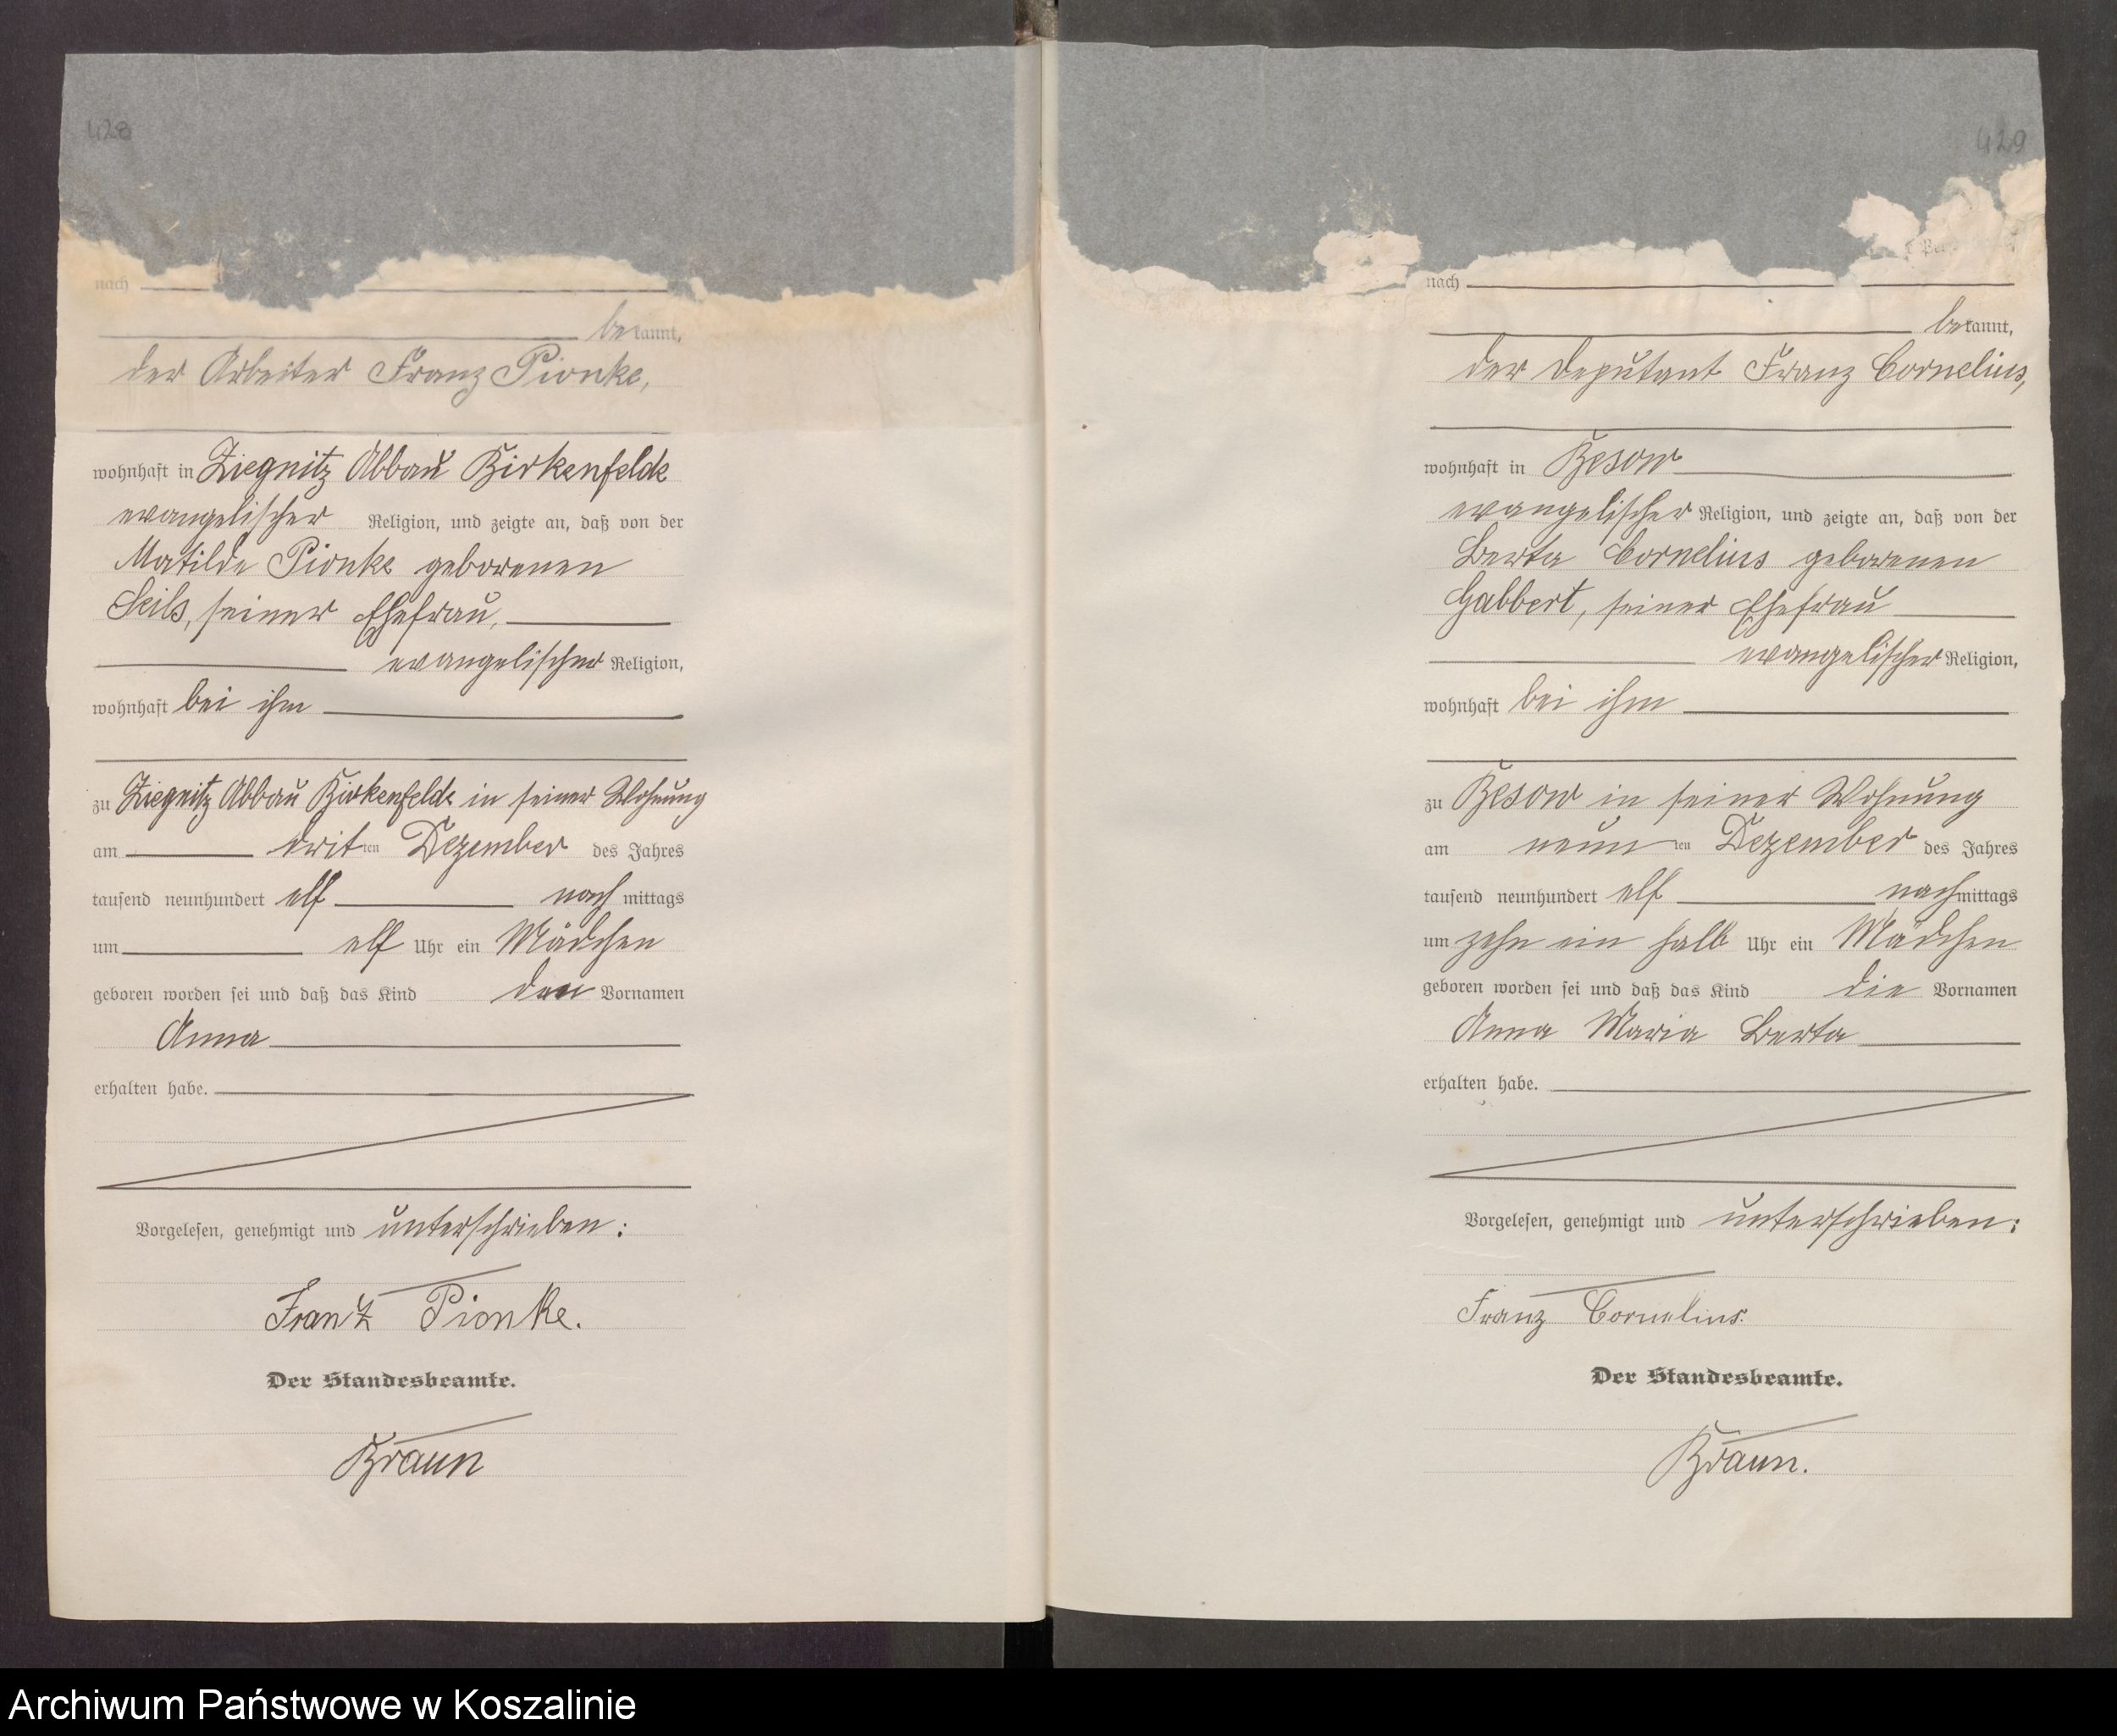 428
nach
bekannt,
der Arbeiter Franz Pionke,
wohnhaft in Ziegnitz Abbau Birkenfelde
evangelischer Religion, und zeigte an, daß von der
Matilde Pionke geborenen
Seils, seiner Ehefrau,
evangelischer Religion,
wohnhaft bei ihm
zu Ziegnitz Abbau Birkenfelde in seiner Wohnung
am dritten Dezember des Jahres
tausend neunhundert elf nachmittags
um elf Uhr ein Mädchen
geboren worden sei und daß das Kind den Vornamen
Anna
erhalten habe.
Vorgelesen, genehmigt und unterschrieben:
Franz Pionke.
Der Standesbeamte.
Braun
429
nach
bekannt,
der Deputant Franz Cornelius,
wohnhaft in Besow
evangelischer Religion, und zeigte an, daß von der
Berta Cornelius geborenen
Gabbert, seiner Ehefrau
evangelischer Religion,
wohnhaft bei ihm
zu Besow in seiner Wohnung
am neunten Dezember des Jahres
tausend neunhundert elf nachmittags
um zehn ein halb Uhr ein Mädchen
geboren worden sei und daß das Kind die Vornamen
Anna Maria Berta
erhalten habe.
Vorgelesen, genehmigt und unterschrieben:
Franz Cornelius.
Der Standesbeamte.
Braun.
Archiwum Państwowe w Koszalinie